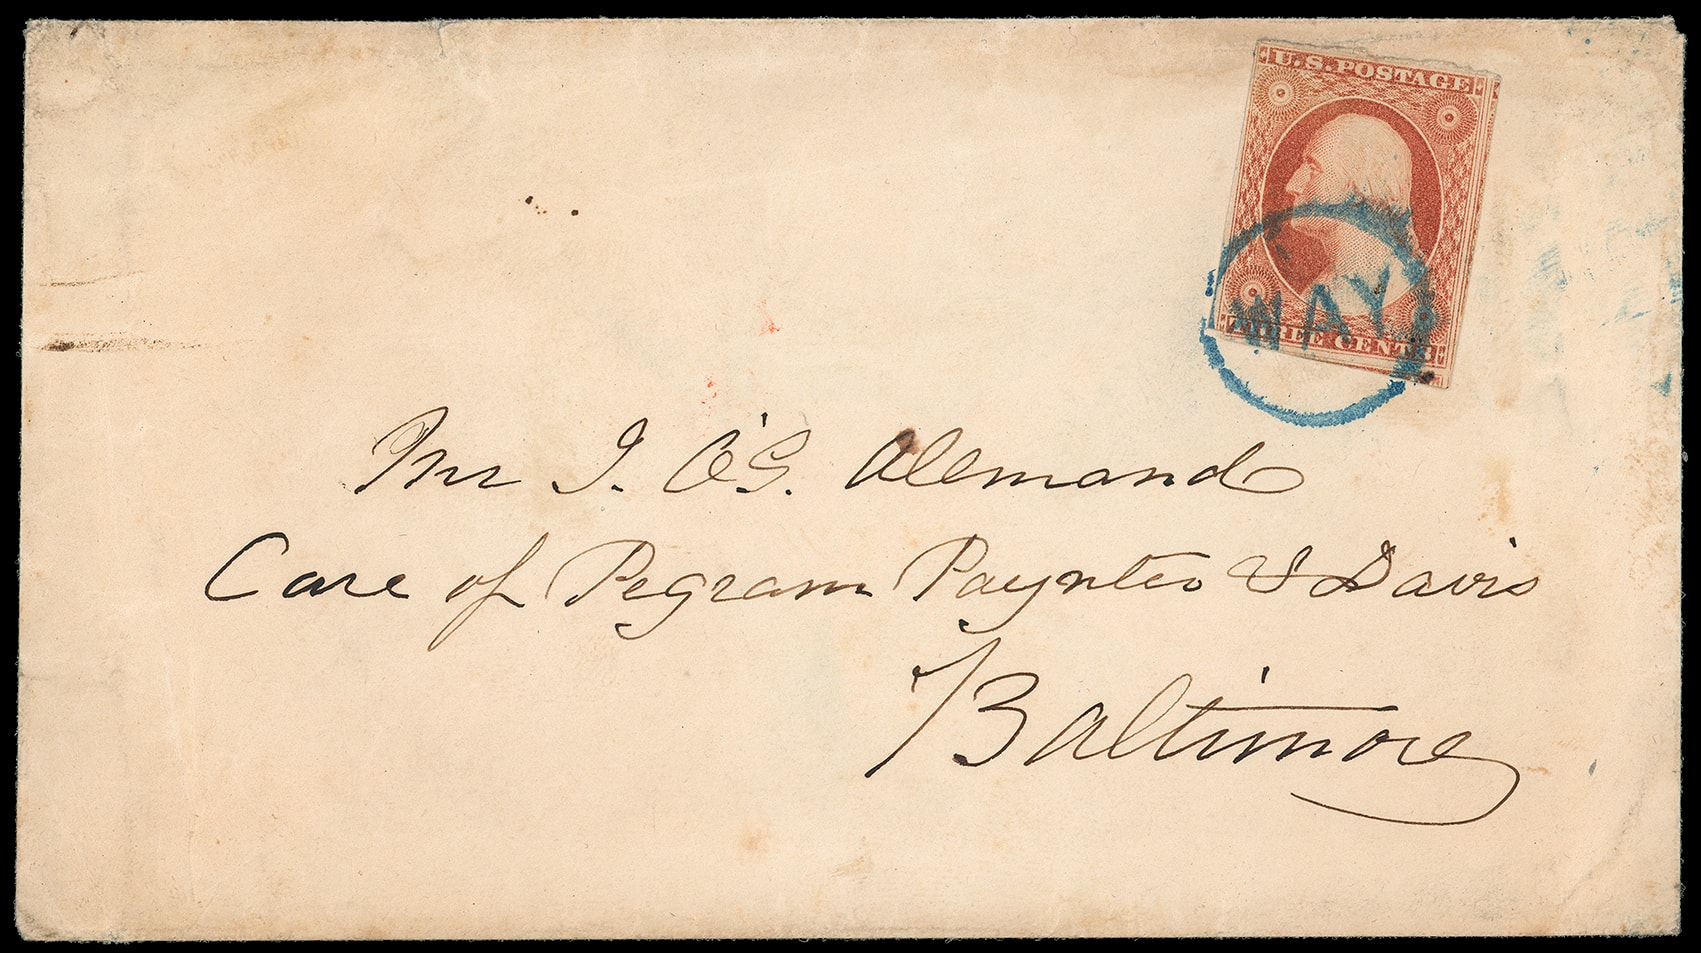 U.S. POSTAGE
WAY
THREE CENTS
Mr J. O'G. Alemand
Care of Pegram Paynter & Davis
Baltimore